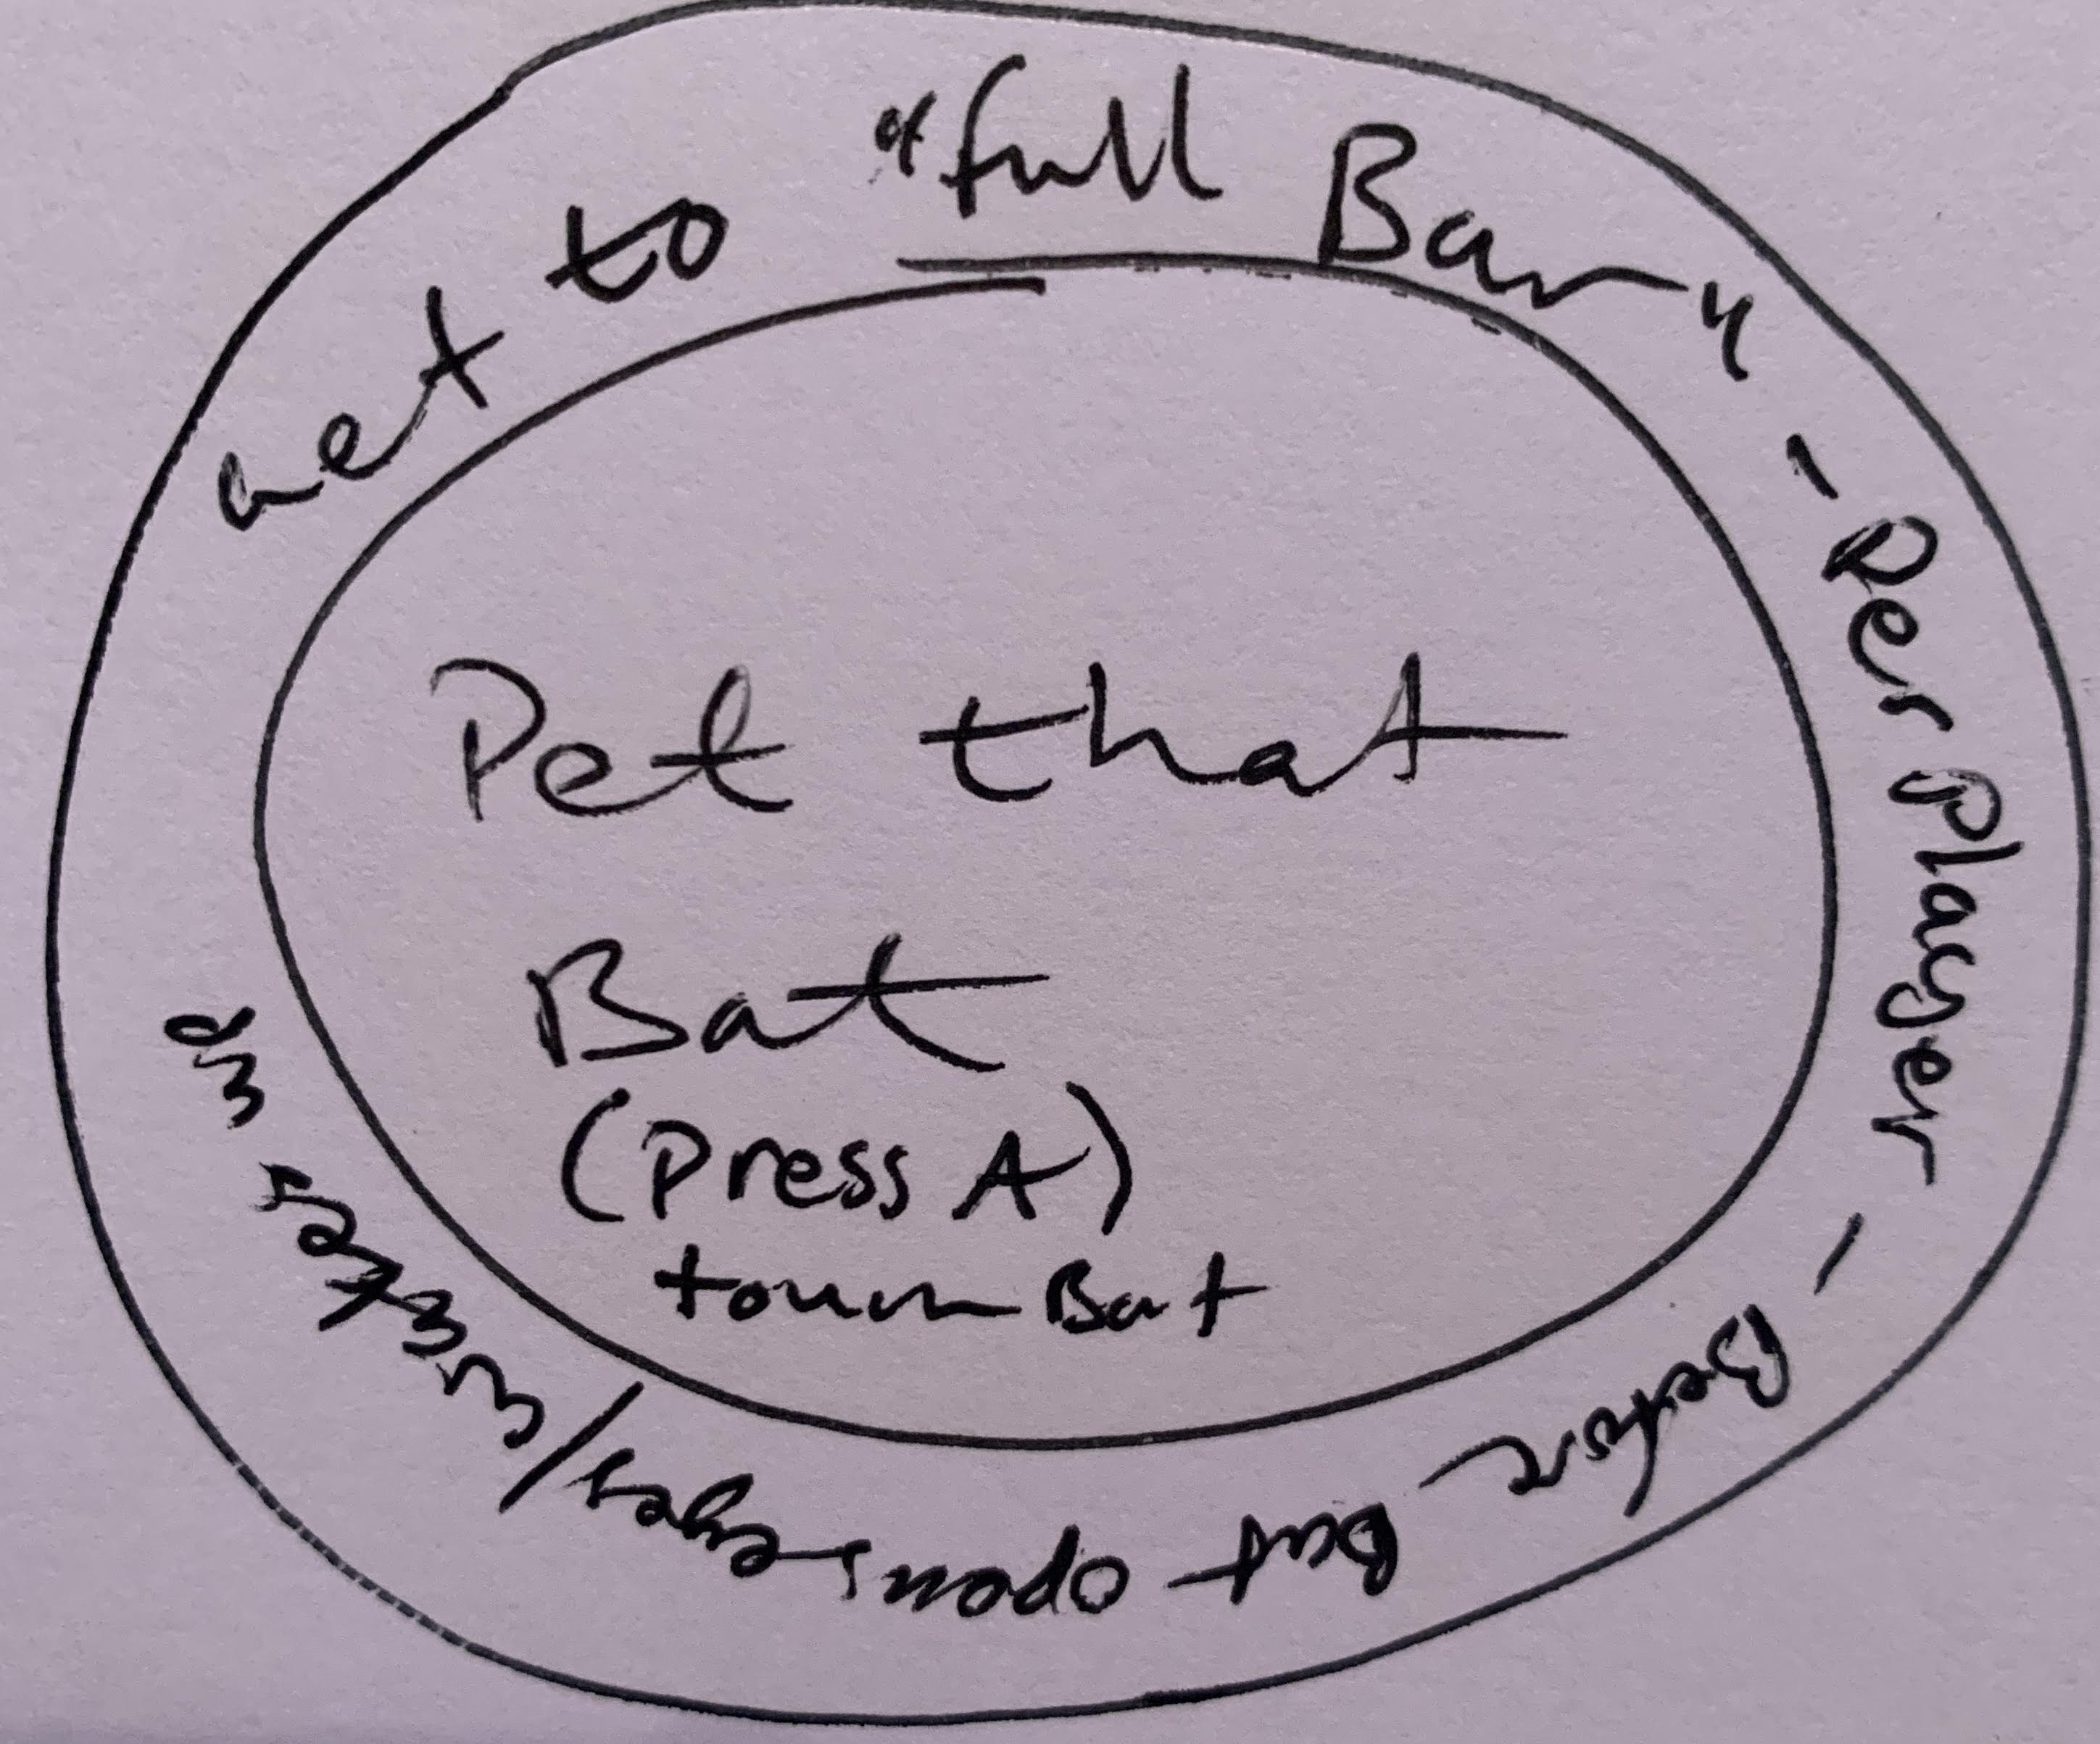 Get to "full Bar" - Per Player - Before Bat opens eyes/
Pet that
Bat
(Press A)
touch Bat